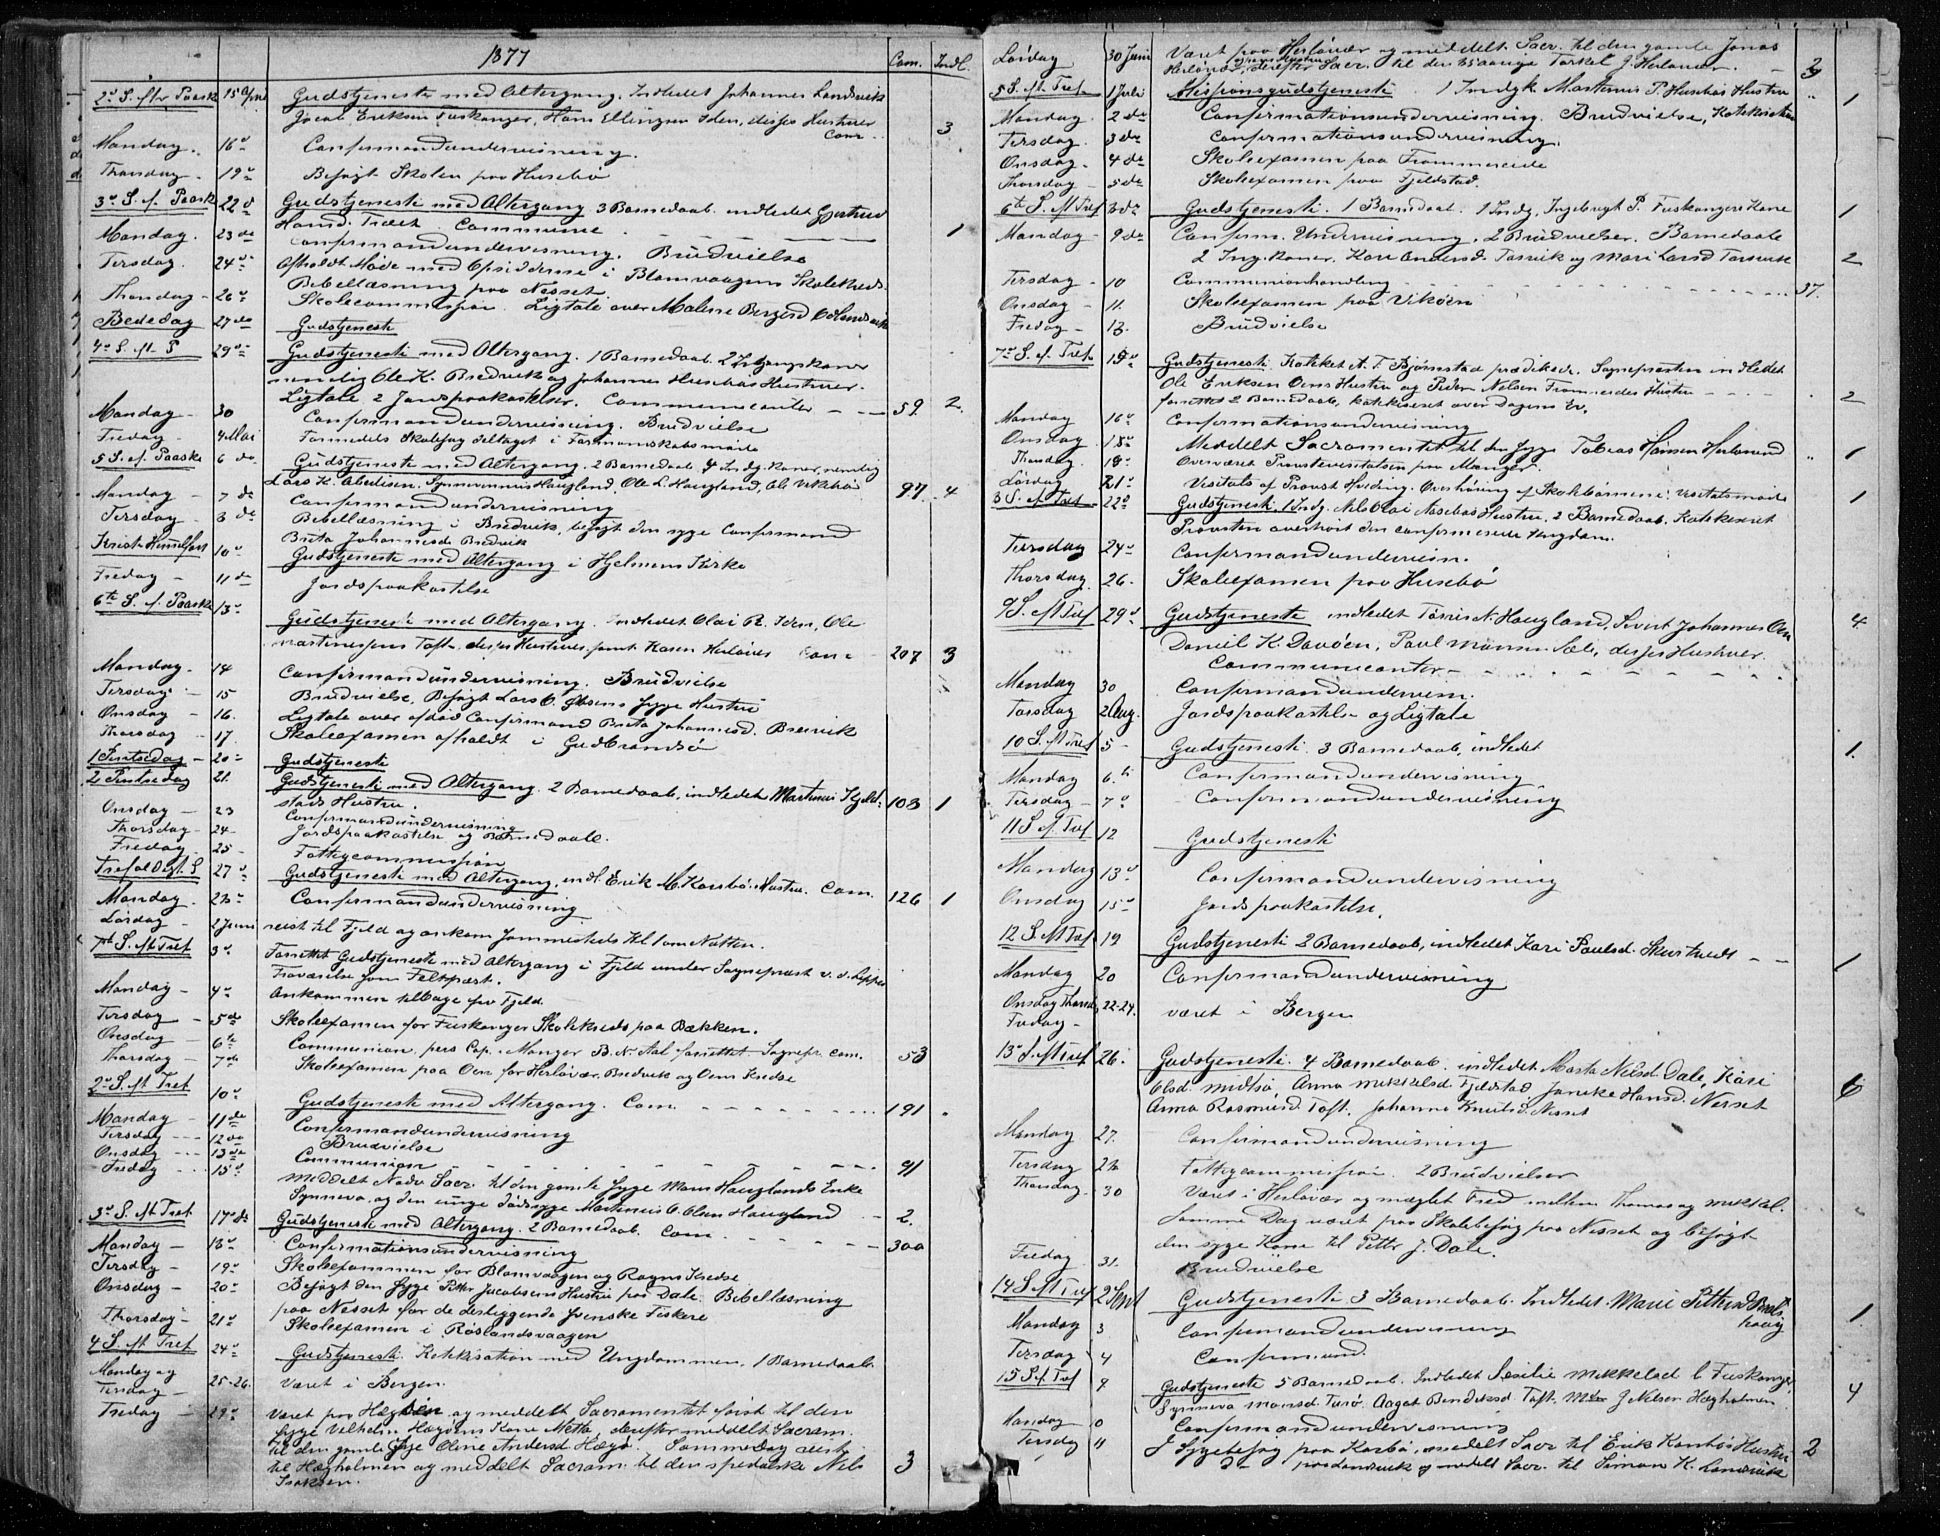 1877
Com. Indl.
2d S. eft. Paask 15 April Gudstjeneste med Altergang. Indledet Johannes Landsvik
Eriksen Fuskanger, Hans Ellingsen Iden, disses Hustruer
Com. 3
Mandag. 16d Confirmandundervisning.
Thorsdag. 19d Besøgt Skolen paa Husebø
3d S. e. Paask 22d Gudstjeneste med Altergang 3 Barnedaab. indledet Gjertrud
Hansd. Communic. 1
Mandag. 23de Confirmandundervisning. Brudvielse
Tersdag. 24d Afholdt Møde med Opsidderne i Blomvaagens Skolekreds.
Bibellæsning paa Nesset
Thorsdag - 26d Skolecommission. Ligtale over Malene
Bededag 27de Gudstjeneste
4d S. eft. P 29d Gudstjeneste med Altergang. 1 Barnedaab. 2 Indgangskoner
nemlig Ole K. Bredvik og Johannes Husebøs Hustruer.
Ligtale 2 Jordspaakastelser. Communicanter - - 59 2.
Mandag - 30 Confirmandundervisning. Brudvielse
Fredag - 4 Mai Formedels Skolesag deltaget i Formandskabsmøde
5 S. e. Paaske 6 de Gudstjeneste med Altergang. 2 Barnedaab. 4 Indg. Koner, nemlig
Lars K. Haugland, Ole L. Haugland, Ole Vikebø 97 4
Mandag - 7 de Confirmandundervisning
Tersdag - 8 de Bibellæsning i Bredvik, besøgt den syge Confirmand
Brita Johannesd. Bredvik
Kristi Himmelfart 10d Gudstjeneste med Altergang i Hjelmens Kirke
Fredag - 11 de Jordspaakastelse
6te S. e. Paaske 13d
Gudstjeneste med Altergang. Indledet Olai R. Iden, Ole
Martinessens Toft, disses Hustruer, samt Karen Herløvær Com - 207 3
Mandag - 14 Confirmandundervisning. Brudvielse
Tersdag - 15 Brudvielse, Besøgt Lars O. syge Hustru
Onsdag - 16. Ligtale over afdød Confirmand Brita Johannesd. Bredvik
Thorsdag - 17. Skoleexamen afholdt i Gudbrandsø
1 Pintsedag - 20 Gudstjeneste
2 Pintsedag 21. Gudstjeneste med Altergang. 2 Barnedaab, indledet Martinus Fjeld-
stads Hustru. 103 1
Onsdag - 23 Confirmandundervisning
Thorsdag - 24 Jordspaakastelse og Barnedaab.
Fredag 25 - Fattigcommission
Trefoldigh. S 27d Gudstjeneste med Altergang, indl. Erik M. Karsbø's Hustru. Com. 126 1
Mandag. 28d Confirmandundervisning
Lørdag - 2 Juni reist til Fjeld og ankom sammesteds Kl. 1 om Natten.
1ste S. eft. Tref. 3d. Forrettet Gudstjeneste med Altergang i Fjeld under Sognepræst v. d. Lippes
Fraværelse som Feltpræst.
Mandag - 4d Ankommen tilbage fra Fjeld.
Tersdag - 5de Skoleexamen for Fuskanger Skolekreds paa Bækken.
Onsdag - 6te Communion, pers. Cap. i Manger B. N. Aal forrettet. Sognepr. com. 53
Thorsdag - 7de Skoleexamen paa Oen for Herløvær, Bredvik og Oens Kredse
2d S. eft. Tref 10d Gudstjeneste med Altergang. Com. - - - 191
Mandag - 11de Confirmandundervisning
Tersdag - - 12de Brudvielse
Onsdag - - 13de Communion - - - 91
Fredag - - 15d Meddelt Nadv. Sacr. til den gamle syge Mons Hauglands Enke
Synneva, og den unge dødssyge Martinus O. Olsen Haugland - 2.
3d S. eft. Tref 17de Gudstjeneste med Altergang. 2 Barnedaab. Com. - - - 300
Mandag - 18d Confirmationsundervisning
Tersdag - 19d Skoleexamen for Blomvaagen og Rogns Kredse
Onsdag - 20d Besøgt den syge Petter Jacobsens Hustru paa Dale. Bibellæsning
paa Nesset for de derliggende svenske Fiskere
Thorsdag - 21d Skoleexamen i Røslandsvaagen
4 S. eft. Tref 24d Gudstjeneste. Katekisation med Ungdommen. 1 Barnedaab.
Mandag og
Tersdag - 25-26. Været i Bergen.
Fredag 29d Været paa og meddelt Sacramentet først til den
syge Vilhelm Kone Mette, derefter meddelt Sacram.
til den gamle syge Oline Andersd. Hægø. Samme dag reist
til Hægholmen og meddelt Sacram. til den spedalske Nils 3
Isaksen.
Lørdag 30 Juni Været paa Herløvær og meddelt Sacr. til den gamle Jonas
Herløvær, derefter Sacr. til den aarige Torkel J. Herløvær. - 3
5 S. eft. Tref 1 Juli Missionsgudstjeneste. 1 Indgk Martinus P. Husebøs Hustru 1
Mandag. 2 de Confirmationsundervisning. Brudvielse,
Tersdag 3 de Confirmationsundervisning.
Onsdag - 4 de Skoleexamen paa Frommereide
Thorsdag - 5 de Skoleexamen paa Fjeldstad.
6te S. eft Tref 8 de Gudstjeneste. 1 Barnedaab. 1 Indg. Ingebrigt P. Fuskangers Kone 1
Mandag - 9 de Confirm. Undervisning. 2 Brudvielser. Barnedaab
2 Ing. Koner, Kari Andersd. Torsvik og Mari Larsd. Torsvik 2
Tersdag - 10 Communionhandling - - - 37.
Onsdag - 11. Skoleexamen paa Vikøen
Fredag - 13. Brudvielse
7d S. e. Tref 15d Gudstjeneste. Kateket A. T. Bjørnstad prædikede. Sognepræsten indledet
Ole Eriksen Oens Hustru og Peder Nelsen Frommereides Hustru - - - 2
forrettet 2 Barnedaab, katekiseret over Dagens Ev.
Mandag 16d Confirmationsundervisning
Onsdag 18d Meddelt Sacramentet til den syge Tobias Hansen 1
Thorsdag 19d Overværet Provstevisitatsen paa Manger.
Lørdag 21d Visitats af Provst Hvoding. Overhøring af Skolebørnene. Visitatsmøde
8 S. ef Tref 22d Gudstjeneste, 1 Indg. Nils Olai Næsebøs Hustru, 2 Barnedaab. Katekiseret 1
Provsten overhørt den confirmerede Ungdom.
Tersdag 24d Confirmandundervisn.
Thorsdag 26. Skoleexamen paa Husebø
9 S. eft Tref 29d Gudstjeneste indledet N. Haugland, Sivert Johannes Oen 4
Daniel K. Davøen, Paul Monsen Sæle, disses Hustruer.
Communicanter - - -
Mandag 30 Confirmandundervisn.
Torsdag 2 Aug. Jordspaakastelse og Ligtale
10 S. eft Tref 5 - Gudstjeneste. 3 Barnedaab, indledet 1.
Mandag 6te Confirmandundervisning
Tersdag - 7d Confirmandundervisning
11 S. ef. Tref 12 Gudstjeneste
Mandag 13d Confirmandundervisning
Onsdag 15d Jordspaakastelse.
12 S. eft Tref 19 Gudstjeneste 2 Barnedaab, indledet Kari Paulsd. - - 1
Mandag 20 Confirmandundervisning
Onsdag Thorsd, 22-24. været i Bergen
Fredag -
13d S. eft Tref 26. Gudstjeneste. 4 Barnedaab. indledet Marta Nelsd. Dale, Kari
Olsd. Midtsø, Anna Mikkelsd. Fjeldstad Janike Hansd. Nesset 6
Anna Rasmusd. Toft. Johanne Knutsd. Nesset
Mandag 27. Confirmandundervisning
Tersdag 28 Fattigcommission. 2 Brudvielser
Thorsdag. 30 Været i Herløvær og mæglet Fred mellem Thomas og Mikkel.
Samme Dag været paa Skolebesøg paa Nesset og besøgt
den syge Kone til Petter J. Dale.
Fredag 31. Brudvielse
14 S. eft Tref 2 Sept Gudstjeneste 3 Barnedaab. Indledet Marie Pettersd. 1.
Mandag 3 Confirmandundervisning
Tersdag 4 Confirmand.
15 S. ef Tref 9. Gudstjeneste 5 Barnedaab. Indledet Sesilie Mikkelsd. Fuskanger, 4
Synneva Monsd. Turø. Aagot Bendiksd. Toft. J. Nelsen Hægholmen
Mandag 10 Confirmandundervisning
Tersdag 11 I Sygebesøg paa Karsbø, meddelt Sacr. til Erik Karsbøs Hustru 2
paa Landsvik og meddelt Sacr. til Simon K. Landsvik